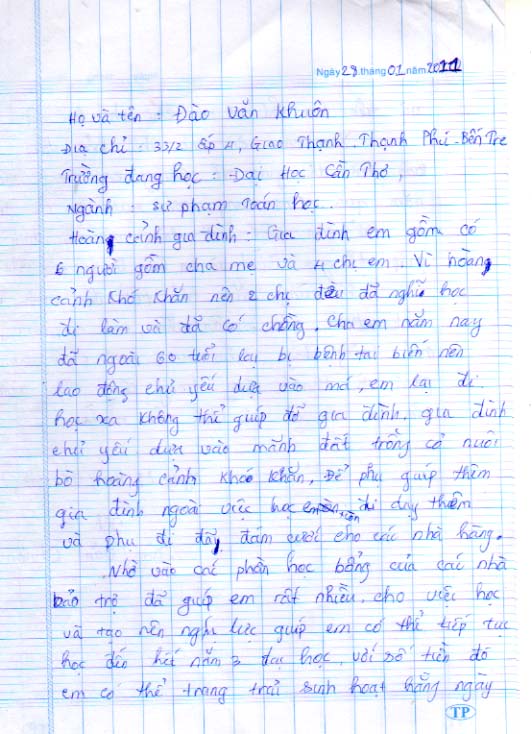 Ngày 28 tháng 01 năm 2011
Họ và tên : Đào Văn Khuôn
Địa chỉ : 33/2 ấp 4, Giao Thạnh, Thạnh Phú - Bến Tre
Trường đang học : Đại Học Cần Thơ,
Ngành : sư phạm Toán học.
Hoàng cảnh gia đình : Gia đình em gồm có
6 người gồm cha mẹ và 4 chị em. Vì hoàng
cảnh khó khăn nên 2 chị đều đã nghỉ học
đi làm và đã có chồng. Cha em năm nay
đã ngoài 60 tuổi lại bị bệnh tai biến nên
lao động chủ yếu dựa vào má, em lại đi
học xa không thể giúp đở gia đình. gia đình
chủ yếu dựa vào mãnh đất trồng cỏ nuôi
bò hoàng cảnh khó khăn. Để phụ giúp thêm
gia đình ngoài việc học em đi dạy thêm
và phụ đi đãi đám cưới cho các nhà hàng.
Nhờ vào các phần học bổng của các nhà
bảo trợ đã giúp em rất nhiều cho việc học
và tạo nên nghị lực giúp em có thể tiếp tục
học đến hết năm 3 đại học, với số tiền đó
em có thể trang trải sinh hoạt hằng ngày
TP